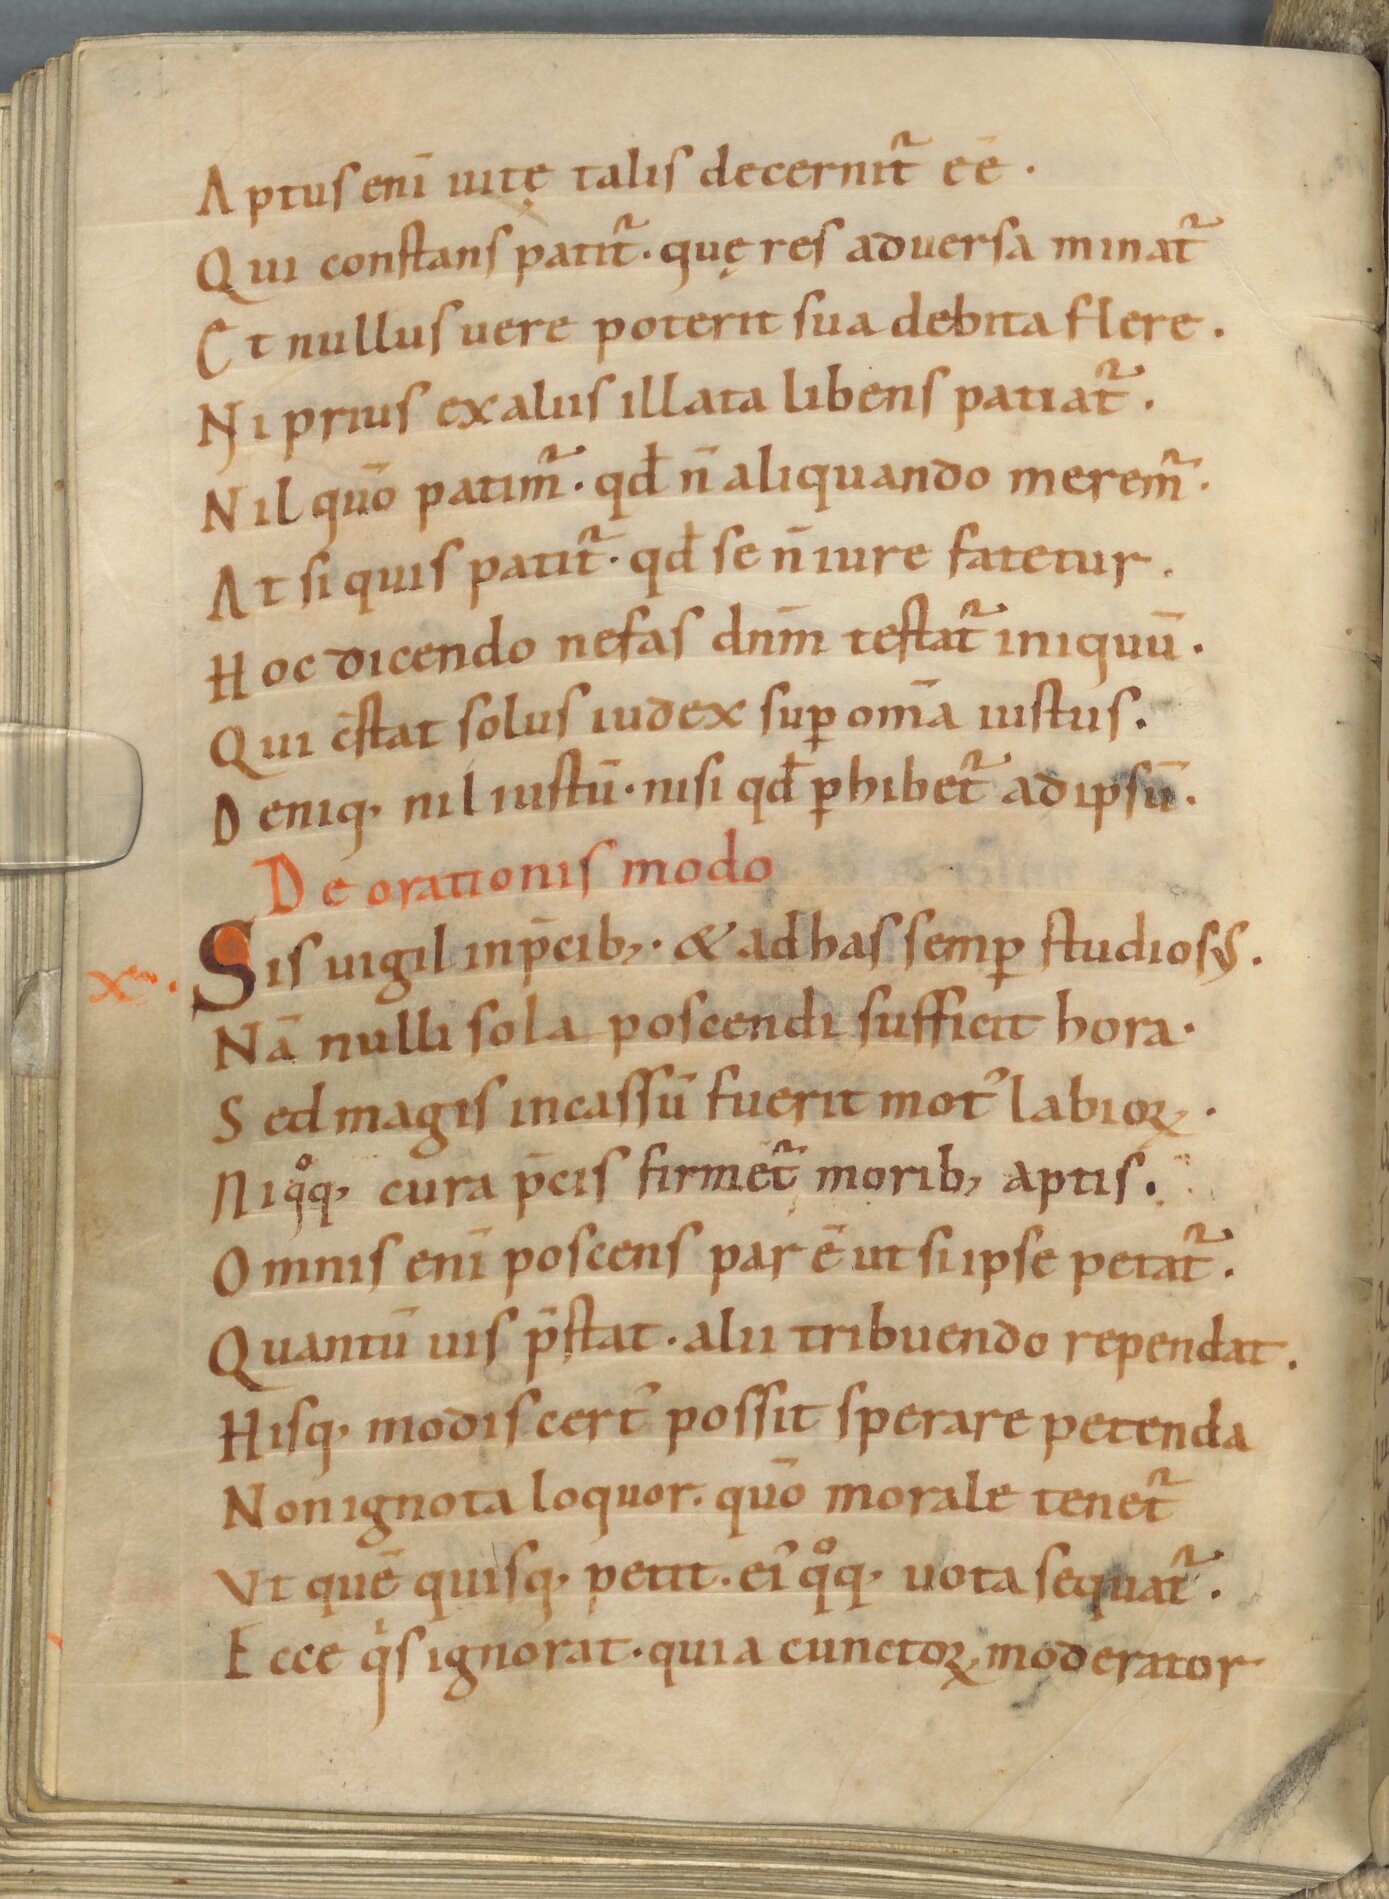 Aptus enī uitę talis decernit᷑ eē .
Qui constans patit᷑ · quę res aduersa minat᷑
Et nullus uere poterit sua debita flere .
Ni prius ex aliis illata libens patiat᷑ .
Nil quō patim᷑ · qđ n̄ aliquando merem᷑ .
At si quis patit᷑ · qđ se n̄ iure fatetur .
Hoc dicendo nefas dnm̄ testat᷑ iniquū .
Qui c̄stat solus iudex suꝑ om̄a iustus .
Deniq, nil iustū · nisi qđ ꝑhibet᷑ ad ipsū .
De orationis modo
X
Sis uigil in p̄cib; · & ad has semꝑ studiosus .
Nā nulli sola poscendi sufficit hora ·
Sed magis incassū fuerit mot᾽ labioꝝ .
Ni qͦq, cura p̄cis firmet᷑ morib; aptis .
Omnis enī poscens par ē ut si ipse petat᷑ .
Quantū uis p̄stat · alii tribuendo rependat .
Hisq, modis cert᾽ possit sperare petenda
Non ignota loquor . quō morale tenet᷑
Vt quē quisq, petit . ei᾽ qͦq, uota sequat᷑ .
Ecce qͥs ignorat · quia cunctoꝝ moderator